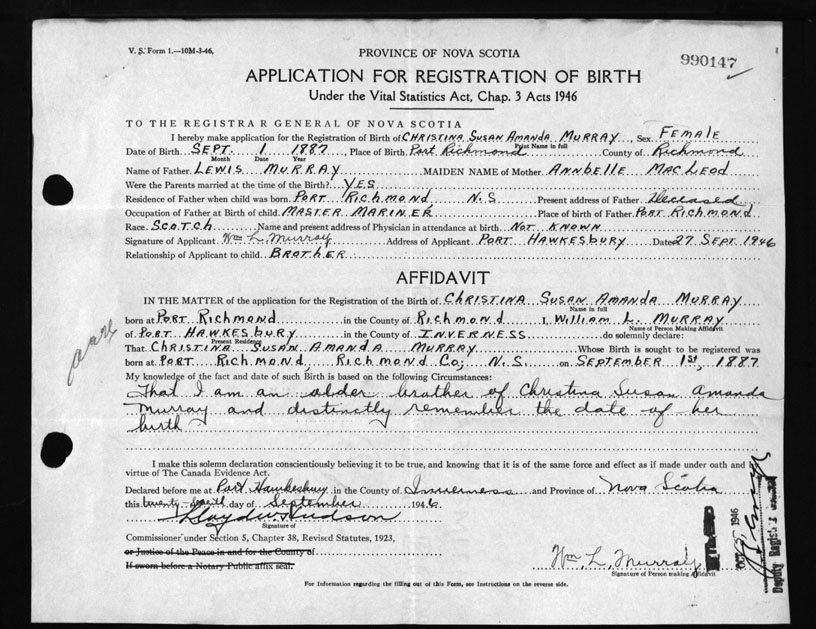 V. S. Form 1.—10M-3-46,
PROVINCE OF NOVA SCOTIA
990147
APPLICATION FOR REGISTRATION OF BIRTH
Under the Vital Statistics Act, Chap. 3 Acts 1946
TO THE REGISTRAR GENERAL OF NOVA SCOTIA
I hereby make application for the Registration of Birth of CHRISTINA SUSAN AMANDA MURRAY, Sex FEMALE
Print Name in full
Date of Birth SEPT. 1 1887, Place of Birth Port Richmond County of Richmond
Month Date Year
Name of Father LEWIS MURRAY MAIDEN NAME of Mother ANNBELLE MACLEOD
Were the Parents married at the time of the Birth? YES
Residence of Father when child was born PORT RICHMOND N.S Present address of Father Deceased,
Occupation of Father at Birth of child MASTER MARINER Place of birth of Father PORT RICHMOND,
Race SCOTCH Name and present address of Physician in attendance at birth NOT KNOWN
Signature of Applicant Wm L. Murray Address of Applicant PORT HAWKESBURY Dated 27 SEPT. 1946
Relationship of Applicant to child BROTHER
AFFIDAVIT
IN THE MATTER of the application for the Registration of the Birth of CHRISTINA SUSAN AMANDA MURRAY
Name in full
born at PORT RICHMOND in the County of RICHMOND I, William L. MURRAY
Name of Person Making Affidavit
of PORT HAWKESBURY in the County of INVERNESS do solemnly declare:
Present Residence
That CHRISTINA SUSAN AMANDA MURRAY Whose Birth is sought to be registered was
born at PORT RICHMOND, RICHMOND Co; N.S. on SEPTEMBER 1ST, 1887
My knowledge of the fact and date of such Birth is based on the following Circumstances:
That I am an older brother of Christina Susan Amanda
Murray and distinctly remember the date of her
birth
I make this solemn declaration conscientiously believing it to be true, and knowing that it is of the same force and effect as if made under oath and
virtue of The Canada Evidence Act.
Declared before me at Port Hawkesbury in the County of Inverness and Province of Nova Scotia
this day of September 1946
Signature of
Commissioner under Section 5, Chapter 38, Revised Statutes, 1923,
or Justice of the Peace in and for the County of
If sworn before a Notary Public affix seal.
Wm. L. Murray
Signature of Person making Affidavit
For Information regarding the filling out of this Form, see Instructions on the reverse side.
1946